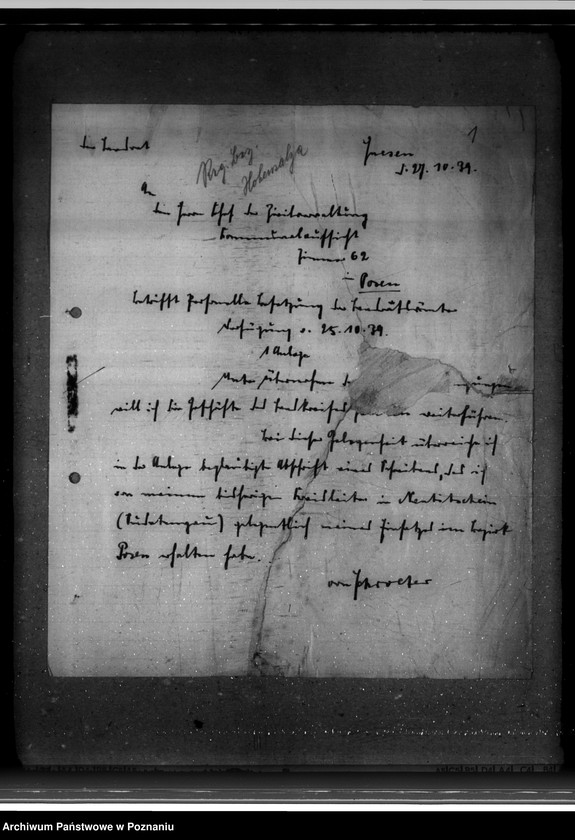 Der Landrat
Gnesen
d. 27. 10. 39.
1
Reg. Bez.
Hohensalza
An
den Herrn Chef der Zivilverwaltung
Kommunalaufsicht
Zimmer 62
in Posen
betrifft Personelle Besetzung der Landratsämter
Verfügung v. 25. 10. 39.
1 Anlage
Unter
will ich die Geschäfte des Landkreises weiterführen.
Bei dieser Gelegenheit überreiche ich
in der Anlage beglaubigte Abschrift eines Schreibens, das ich
von meinem bisherigen Kreisleiter in Neutitschein
(Sudetengau) gelegentlich meines Einsatzes im Bezirk
Posen erhalten habe.
Archiwum Państwowe w Poznaniu